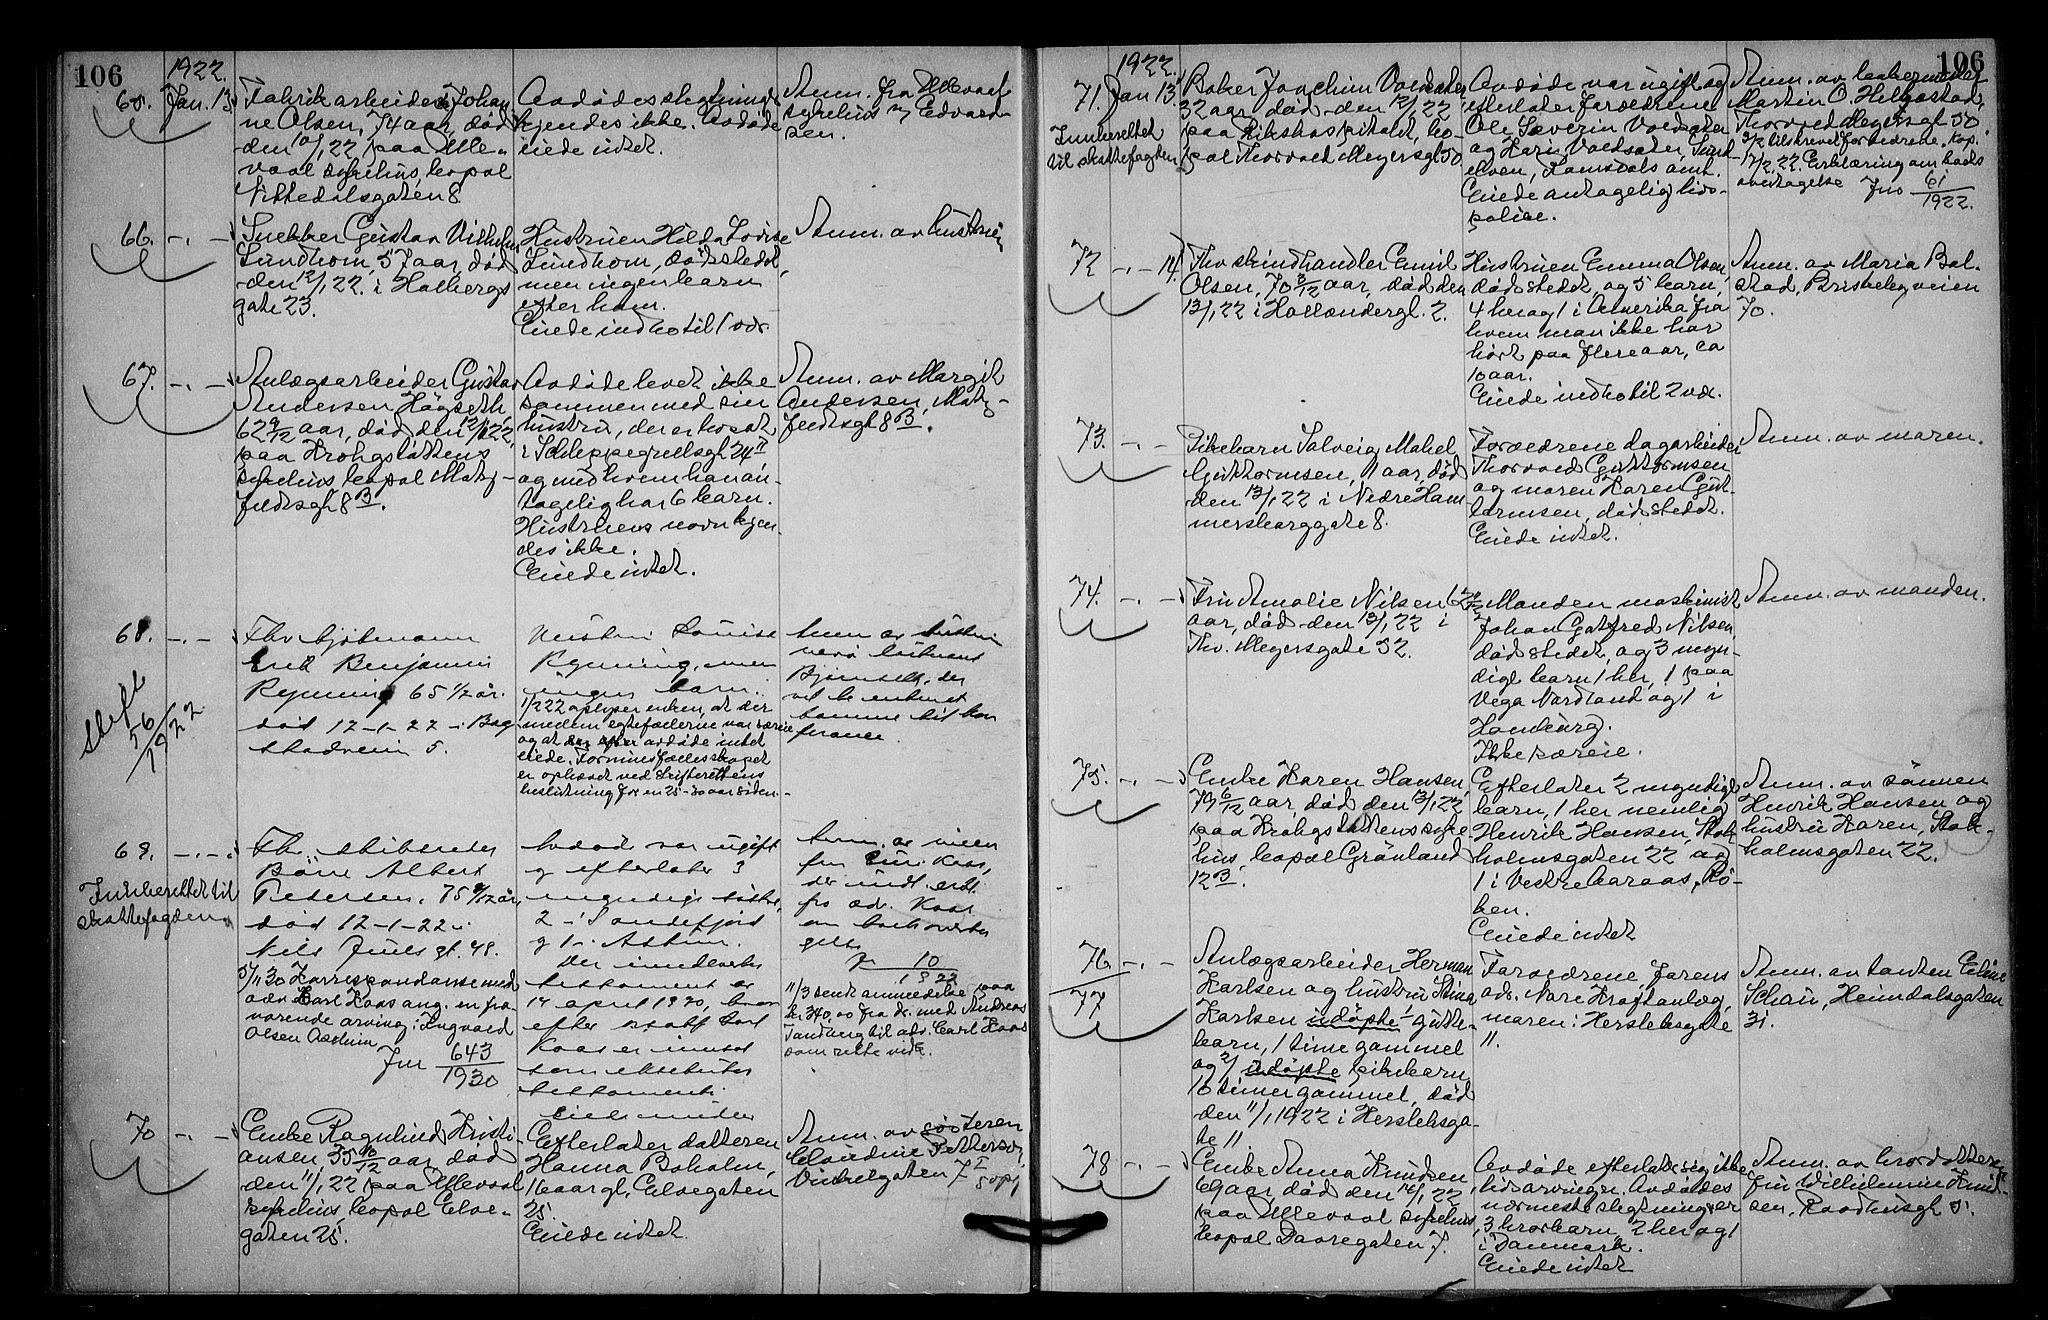 106
1922.
65. Jan. 13.
Fabrikarbeider Johan
ne Olsen, 74 aar, død
den 10/1 22 paa Ulle-
vaal sykehus, bopæl
Nittedalsgaten 8.
Avdødes slegtninge
kjendes ikke. Avdøde
eiede intet.
Anm. fra Ullevaal
sykehus v/ Edvard-
sen.
66. -.-
Snekker Gustav Vilhelm
Lundhom, 57 aar, død
den 12/1 22 i Holbergs
gate 23.
Hustruen Hilda Lovise
Lundhom, dødsstedet,
men ingen barn
efter ham.
Eiede indbo til 1 vær.
Anm. av hustruen
67. -.-
Anlægsarbeider Gustav
Andersen Högseth,
62 9/12 aar, død den 12/1 22
paa Krohgstøttens
sykehus, bopæl Matz-
feldtsgt 8 B.
Avdøde levet ikke
sammen med sin
hustru, der er bosat
i Schleppegrellsgt 24 II
og med hvem han an-
tagelig har 6 barn.
Hustruens navn kjen-
des ikke.
Eiede intet.
Anm. av Margit
Andersen, Matz-
feldtsgt 8 B.
68. -.-
Skifte
56/1922
Fhv sjømann
Erik Benjamin
Rynning 65 1/2 år.
død 12-1-22 i Bog
stadveien 5.
Hustru Louise
Rynning, men
ingen barn.
1/2 22 oplyser enken, at der
mellem egtefællerne var særeie
og at avdøde intet
eiede. Formuesfællesskapet
er ophævet ved Skifterettens
beslutning for en 25-30 aar siden.
Anm av hustru
ved
der
vil
komme til kon
ferance.
69. -.-
Indberettet til
skattefogden
Fhv. skibsreder
Albert
Pedersen, 75 år
død 12-1-22 i
Nels Juels gt. 48.
Korrespondanse med
adv. Carl Kaas ang. en fra-
værende arving: Ingvald
Olsen Askim
Jnr 643/1930
Avdød var ugift
og efterlater 3
myndige søstre,
2 i Sandefjord
og 1 i Askim.
Der indleveres
testament av
14 april 1920, hvor
efter
Kaas er innsat
som eksekutor
testamenti.
Anm. av
Kaas,
der indl. erkl.
fra adv. Kaas
om
J 10/1922
11/3 sendt anmeldelse paa
kr 340,00 fra dr. med Andreas
Tandberg til adv. Carl Kaas
som rette vedk.
70 -.-
Enke Ragnhild Kristi-
ansen, 35 10/12 aar, død
den 11/1 22 paa Ullevaal
sykehus, bopæl Elve-
gaten 25.
Efterlater datteren
Hanna Boholm,
16 aar gl., Elvegaten
25.
Eiede intet.
Anm. av søsteren
Claudine Pettersen,
7 I
106
1922.
71. Jan 13.
Indberettet
til skattefogden
Baker Joachim Voldsæter,
32 aar, død den 12/1 22
paa Rikshospitalet, bo-
pæl Thorvald Meyersgt 50
Avdøde var ugift og
efterlater forældrene
Ole Severin Voldsæter
og Karen Voldsæter, Sund-
elven, Romsdals amt.
Eiede antagelig livs-
polise.
Anm. av bakermester
Martin O. Helgestad,
Thorvald Meyersgt 50
3/2 tilskrevet forældrene. Kop.
17/2 22. Erklæring om boets
overtagelse Jnr 61/1922.
72 -.- 14.
Fhv skindhandler Emil
Olsen, 70 3/12 aar, død den
13/1 22 i Hollendergt. 2.
Hustruen Emma Olsen,
dødsstedet, og 5 barn,
4 her og 1 i Amerika fra
hvem man ikke har
hørt paa flere aar, ca
10 aar.
Eiede indbo til 2 vær.
Anm. av Maria Bol-
stad, Briskebyveien
70.
73. -.-
Pikebarn Solveig Mabel
Guttormsen, 11 aar, død
den 13/1 22 i Nedre Ham
mersborggate 8.
Forældrene dagarbeider
Thorvald Guttormsen
og moren Karen Gut-
tormsen, dødsstedet.
Eiede intet.
Anm. av moren.
74. -.-
Fru Amalie Nilsen 62
aar, død den 13/1 22 i
Thv. Meyersgate 52.
Manden maskinist
Johan Gotfred Nilsen,
dødsstedet, og 3 myn-
dige barn, 1 her, 1 paa
Vega Nordland og 1 i
Hamburg.
Ikke særeie.
Anm. av manden.
75. -.-
Enke Karen Hansen,
79 6/12 aar, død den 13/1 22
paa Krohgstøttens syke-
hus, bopæl Grönland
12 B.
Efterlater 2 myndige
barn, 1 her nemlig
Henrik Hansen, Stok-
holmsgaten 22 og
1 i Vestre Baraas, Rö-
ken.
Eiede intet
Anm. av sönnen
Henrik Hansen og
hustru Karen, Stok-
holmsgaten 22.
76 -.-
77
Anlægsarbeider Herman
Karlsen og hustru Stina
Karlsen udöpte gutte-
barn, 1 time gammel
og 2/ udöpte pikebarn
10 timer gammel, död
den 11/1 1922 i Herslebsga-
te 11
Forældrene, farens
adr. Nore Kraftanlæg,
moren: Herslebsgate
11.
Anm. av tanten Eline
Schau, Heimdalsgaten
31.
78 -.-
Enke Anna Knudsen,
69 aar, död den 12/1 22
paa Ullevaal sykehus,
bopæl Daaregaten 7.
Avdøde efterlater sig ikke
livsarvinger. Avdødes
nærmeste slegtninge er
3 brorbarn, 2 her og 1
i Danmark.
Eiede intet
Anm. av brordatteren
fru Wilhelmine Knud-
sen, Raadhusgt 5.